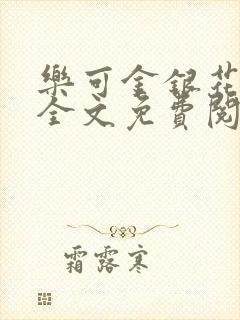 樂可金銀花
全文免費閱
霜露寒